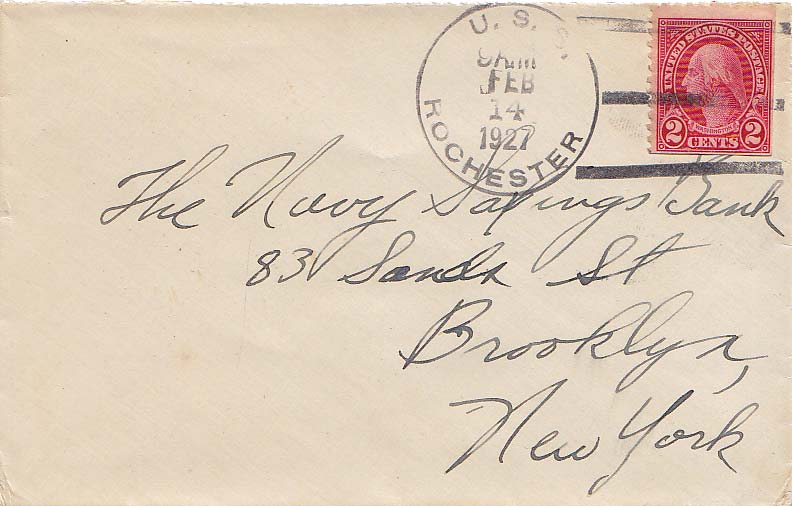 U. S. S.
9AM
FEB
14
1927
ROCHESTER
UNITED STATES POSTAGE
WASHINGTON
2 CENTS 2
The Navy Savings Bank
83 Sands St
Brooklyn,
New York